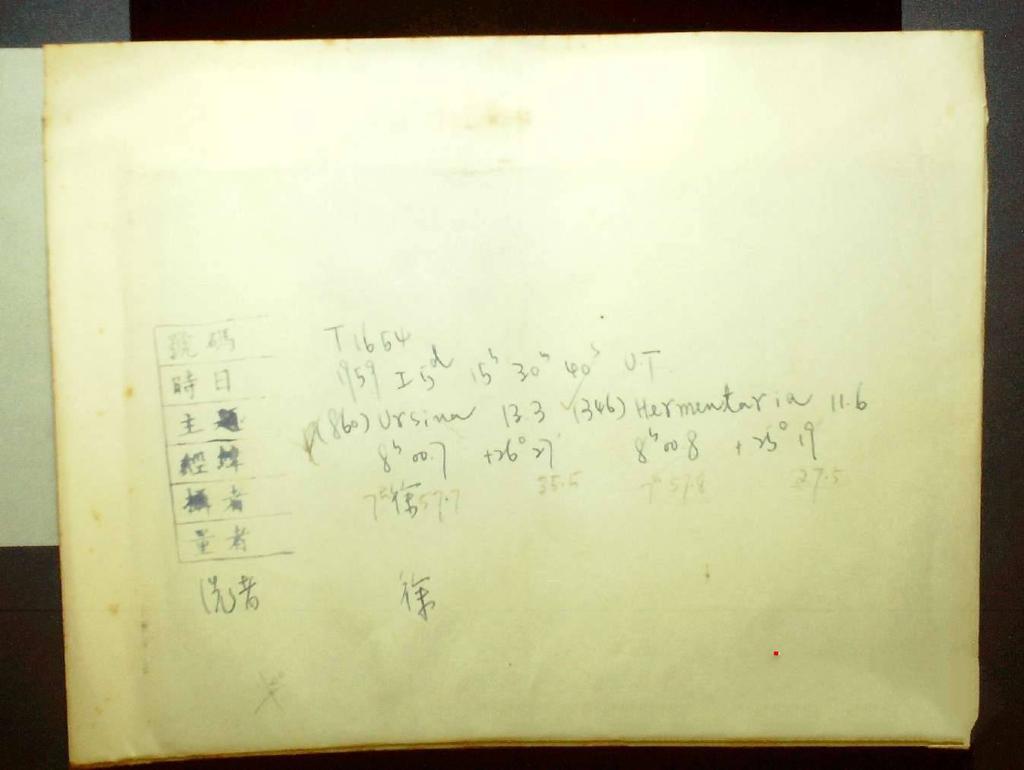 號碼 T1654
時日 1959 I 5d 15h 30m 40s U.T.
主題 (860) Ursina 13.3 (346) Hermentaria 11.6
經緯 8h 00.7 +26° 27' 8h 00.8 +25° 19
攝者 徐 7h 57.7 35.5 7h 57.8 27.5
量者
洗者 徐